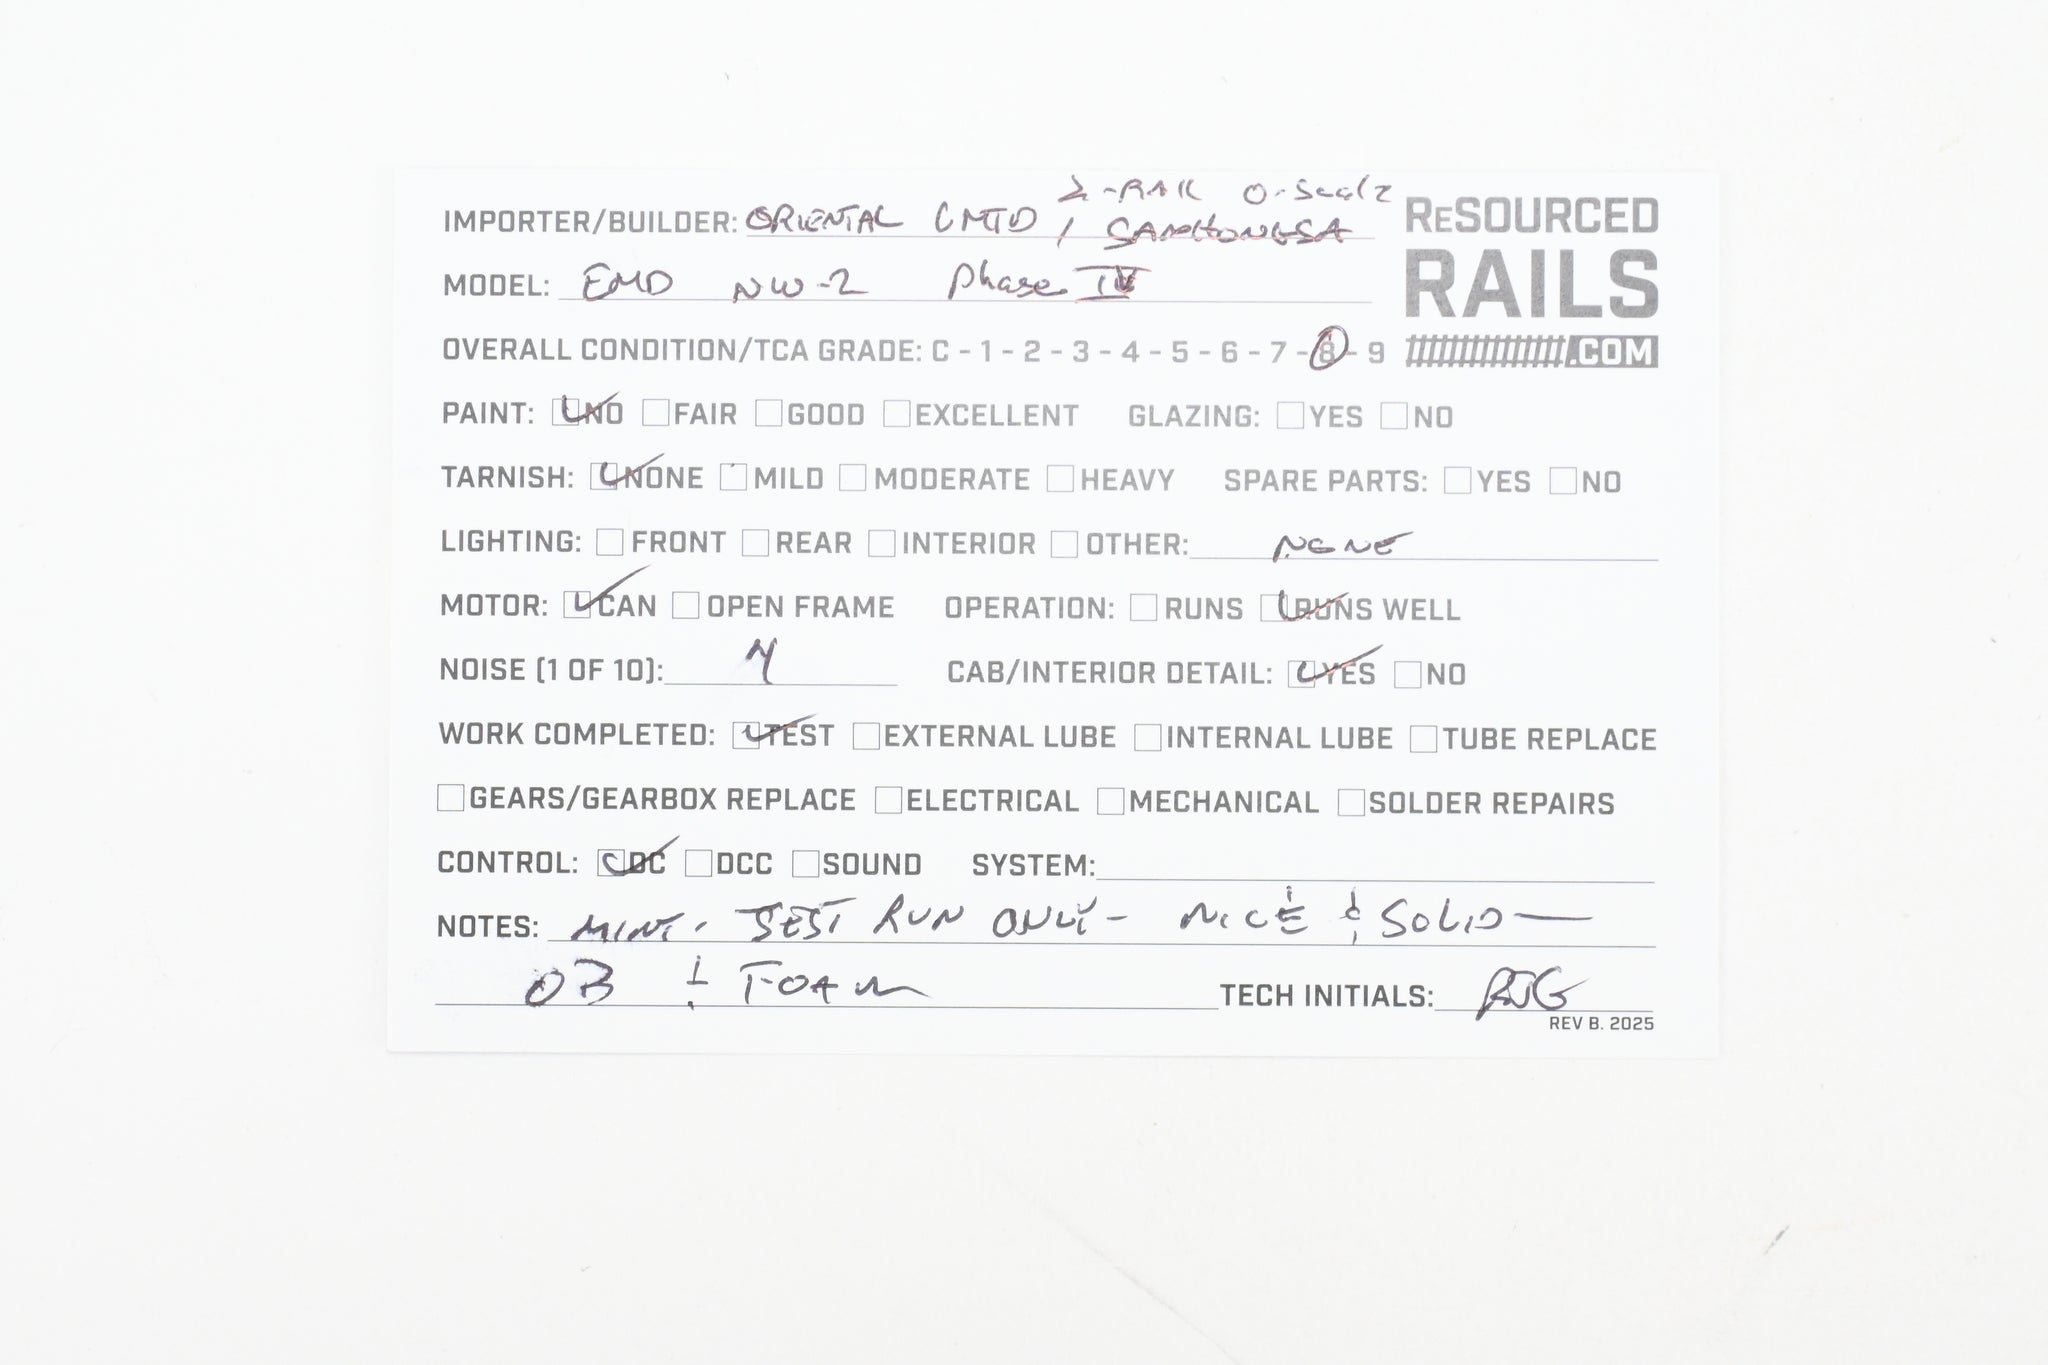 2-RAIL O-Scale
IMPORTER/BUILDER: ORIENTAL LMTD / SAMHONGSA
ReSOURCED
RAILS
.COM
MODEL: EMD NW-2 Phase IV
OVERALL CONDITION/TCA GRADE: C - 1 - 2 - 3 - 4 - 5 - 6 - 7 - 8 - 9
PAINT: NO FAIR GOOD EXCELLENT GLAZING: YES NO
TARNISH: NONE MILD MODERATE HEAVY SPARE PARTS: YES NO
LIGHTING: FRONT REAR INTERIOR OTHER: NONE
MOTOR: CAN OPEN FRAME OPERATION: RUNS RUNS WELL
NOISE (1 OF 10): 4
CAB/INTERIOR DETAIL: YES NO
WORK COMPLETED: TEST EXTERNAL LUBE INTERNAL LUBE TUBE REPLACE
GEARS/GEARBOX REPLACE ELECTRICAL MECHANICAL SOLDER REPAIRS
CONTROL: DC DCC SOUND SYSTEM:
NOTES: MINT. TEST RUN ONLY - NICE & SOLID —
OB & FOAM TECH INITIALS: RJG
REV B. 2025